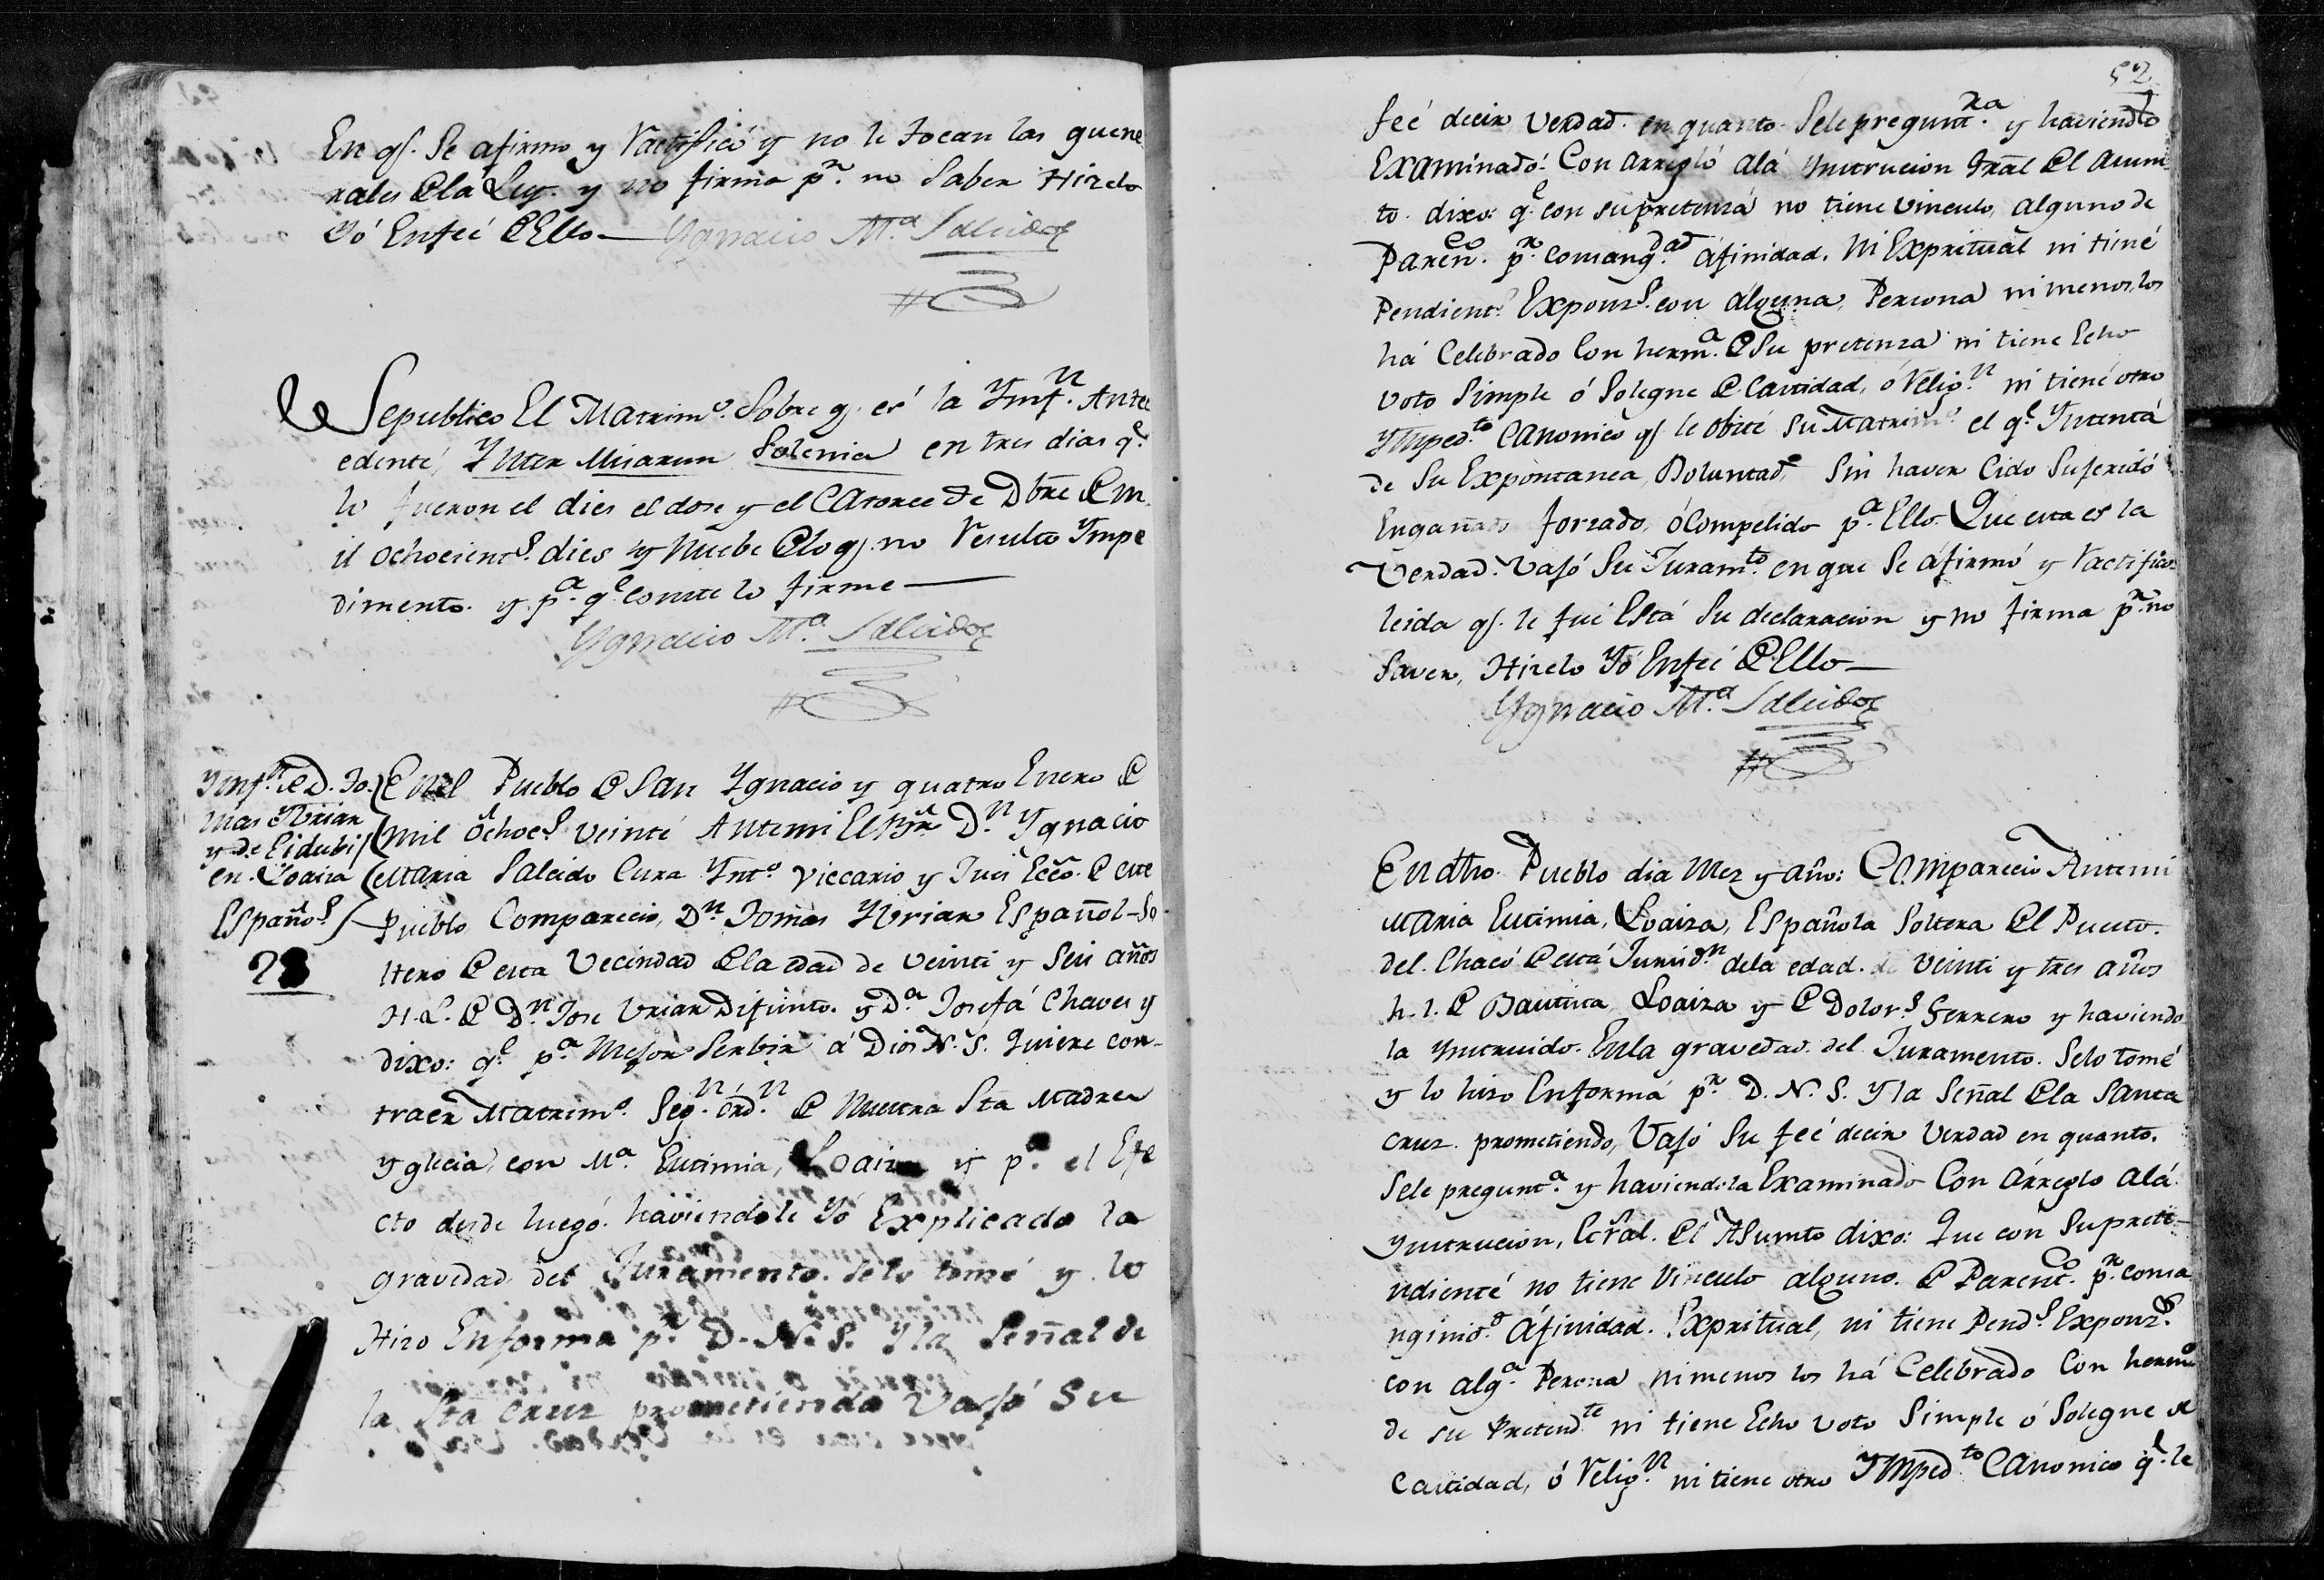 En q.e Se afirmo y Ractificó y no le tocan las gene
rales de la Ley y no firma p.r no Saber Hizelo
Yó Enfeé de Ello — Ygnacio M.a Salcido
Sepublico El Matrim.o Sobre q.e es la Ynf.n Antec
edenté, Ynter Misarum Solenia en tres dias q.e
lo fueron el dies el dose y el Catorce de Dbre de m
il ochocient.s dies y Nuebe de lo q.e no Resulto Ympe
dimento. y p.a q.e Conste lo firme —
Ygnacio M.a Salcido
Ynf.n de D. To.
mas Yvrian
y de
en. Loaiza
Españo.s
23
En el Pueblo de San Ygnacio y quatro Enero de
Mil Ochoc.s Veinté Antemi El Br. D.n Ygnacio
Maria Salcido Cura Ynt.o Viccario y Jues Ecco. de este
Pueblo Comparecio, D.n Tomas Yvrian Español-So
ltero de esta Vecindad de la edad de Veinti y Seis años
H. L. de D.n Jose Vrian Difunto. y D.a Josefá Chaves y
dixo: q.e p.a Mejor Serbir á Dios N. S. Quiere con-
traer Matrim.o Seg.n órd.n de Nuestra Sta Madre
Yglecia, con M.a Eutimia, Loaiza y p.a el Efe
cto desde luegó. haviendole Yó Explicado la
gravedad del Juramento. Selo tomé y lo
Hizo Enforma p.r D. N. S. Y la Señal de
la Sta Cruz prometiendo Vajó Su
52
feé decir Verdad en quanto Sele pregunt.ra y haviendolo
Examinadó: Con arregló alá Ynstrucion Gral del asum
to. dixo: q.e con supretensa no tiene Vinculo, alguno de
Paren.co p.r Consang.dad áfinidad, Ni Expritual ni tiené
Pendient.s Expons.s con alguna, Persona ni menos, los
há Celebrado Con herm.a de Su pretensa ni tiene Echo
Voto Simple ó Solegne de Castidad, ó Relig.n ni tiené otro
Ymped.to Canonico q.e le obste Su Matrim.o el q.e Yntentá
de Su Expontanea Voluntad, Sin haver Cido Suferidó
Engañado forzado, ó Compelido p.a Ello. Que esta es la
Verdad. Vajó Su Juram.to en que Se áfirmó y Ractificó
leida q.e le fué Está Su declaracion y no firma p.r no
Saver, Hizelo Yó Enfeé de Ello —
Ygnacio M.a Salcido
En dho. Pueblo dia Mez y año: Comparecio Antemi
Maria Eutimia, Loaiza, Española Soltera del Puesto.
del. Chacó de está Jurisd.n dela edad. de Veinti y tres años
h. l. de Bautista Loaiza y de Dolor.s Ferrero y haviendo
la Ynstruido. Enla gravedad. del Juramento. Selo tomé
y lo hizo Enformá p.r D. N. S. Y la Señal de la Santa
Cruz. prometiendo, Vajó Su feé decir Verdad en quanto.
Sele pregunt.a y haviendola Examinado Con Arreglo alá
Ynstrucion, Gral. del Asumto dixo: Que con Suprete-
ndienté no tiene Vinculo alguno. de Parent.co p.r consa
nginid.d Áfinidad. Expritual, ni tiene Pend.s Expons.s
con alg.a Persona nimenos los há Celebrado Con herm.o
de su Pretend.te ni tiene Echo Voto Simple ó Solegne de
Castidad, ó Relig.n ni tiene otro Ymped.to Canonico q.e le